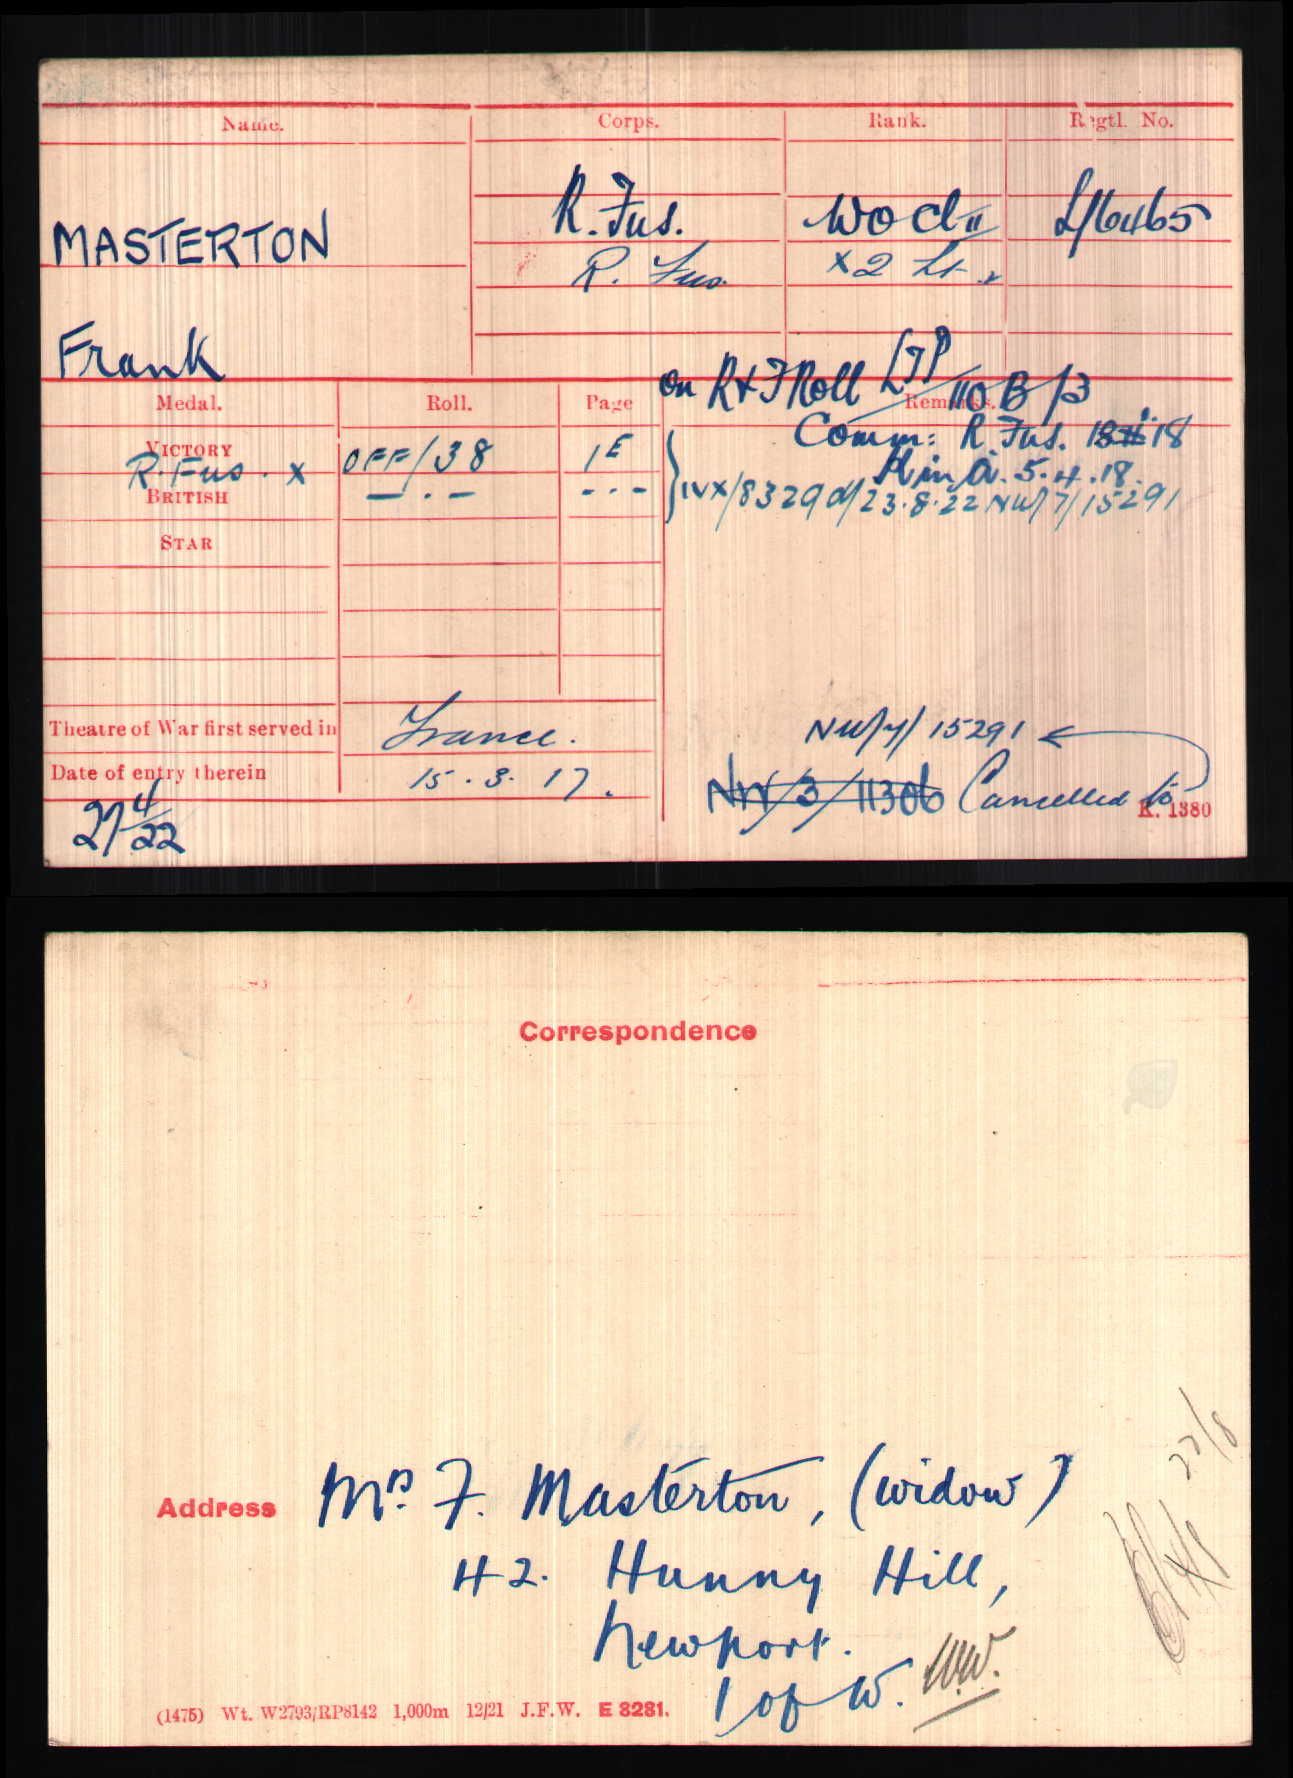 Name. Corps. Rank. Regtl. No.
MASTERTON R. Fus. WO Cl II L/6465
R. Fus. X 2 Lt. X
Frank
on R & F Roll LTP/110 B/3
Medal. Roll. Page Remarks.
VICTORY Comm: R. Fus. 18
R. Fus. X OFF/38 1E K in A. 5.4.18.
BRITISH — . — - - - IVX/8329 d/23.8.22 NW/7/15291
STAR
Theatre of War first served in France. NW/7/15291
Date of entry therein 15.3.17. NW/3/11306 Cancelled to
K. 1380
27 4/22
Correspondence
22/8
Address Mrs. F. Masterton, (widow)
42. Hunny Hill,
Newport.
I of W. W.W.
(1475) Wt. W2793/RP8142 1,000m 12/21 J.F.W. E 3281.